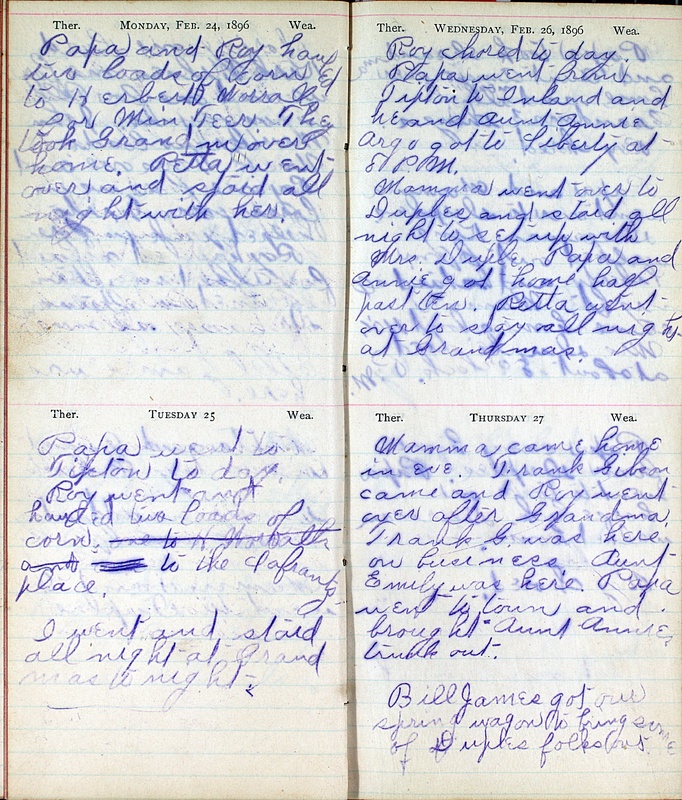 Ther. MONDAY, FEB. 24, 1896 Wea.
Papa and Roy haul
two loads of corn
to Herbert
for Min Teer. They
took Grandm over
home. Petta went
over and staid all
night with her.
Ther. TUESDAY 25 Wea.
Papa went to
Tipton to day.
Roy went and
hauled two loads of
corn. to H
and to the
place.
I went and staid
all night at Grand
mas to night.
Ther. WEDNESDAY, FEB. 26, 1896 Wea.
Roy chored to day.
Papa went from
Tipton to Inland and
he and Aunt Annie
Argo got to Liberty at
8 P.M.
Mamma went over to
Duples and staid all
night to set up with
Mrs. Duple. Papa and
Annie got home half
past ten. Petta went
over to stay all night
at Grandmas.
Ther. THURSDAY 27 Wea.
Mamma came home
in eve. Frank Gibson
came and Roy went
over after Grandma.
Frank G. was here
on business. Aunt
Emily was here. Papa
went to town and
brought Aunt Annie,
trunk out.
Bill James got our
spring wagon to bring some
of Duples folks out.